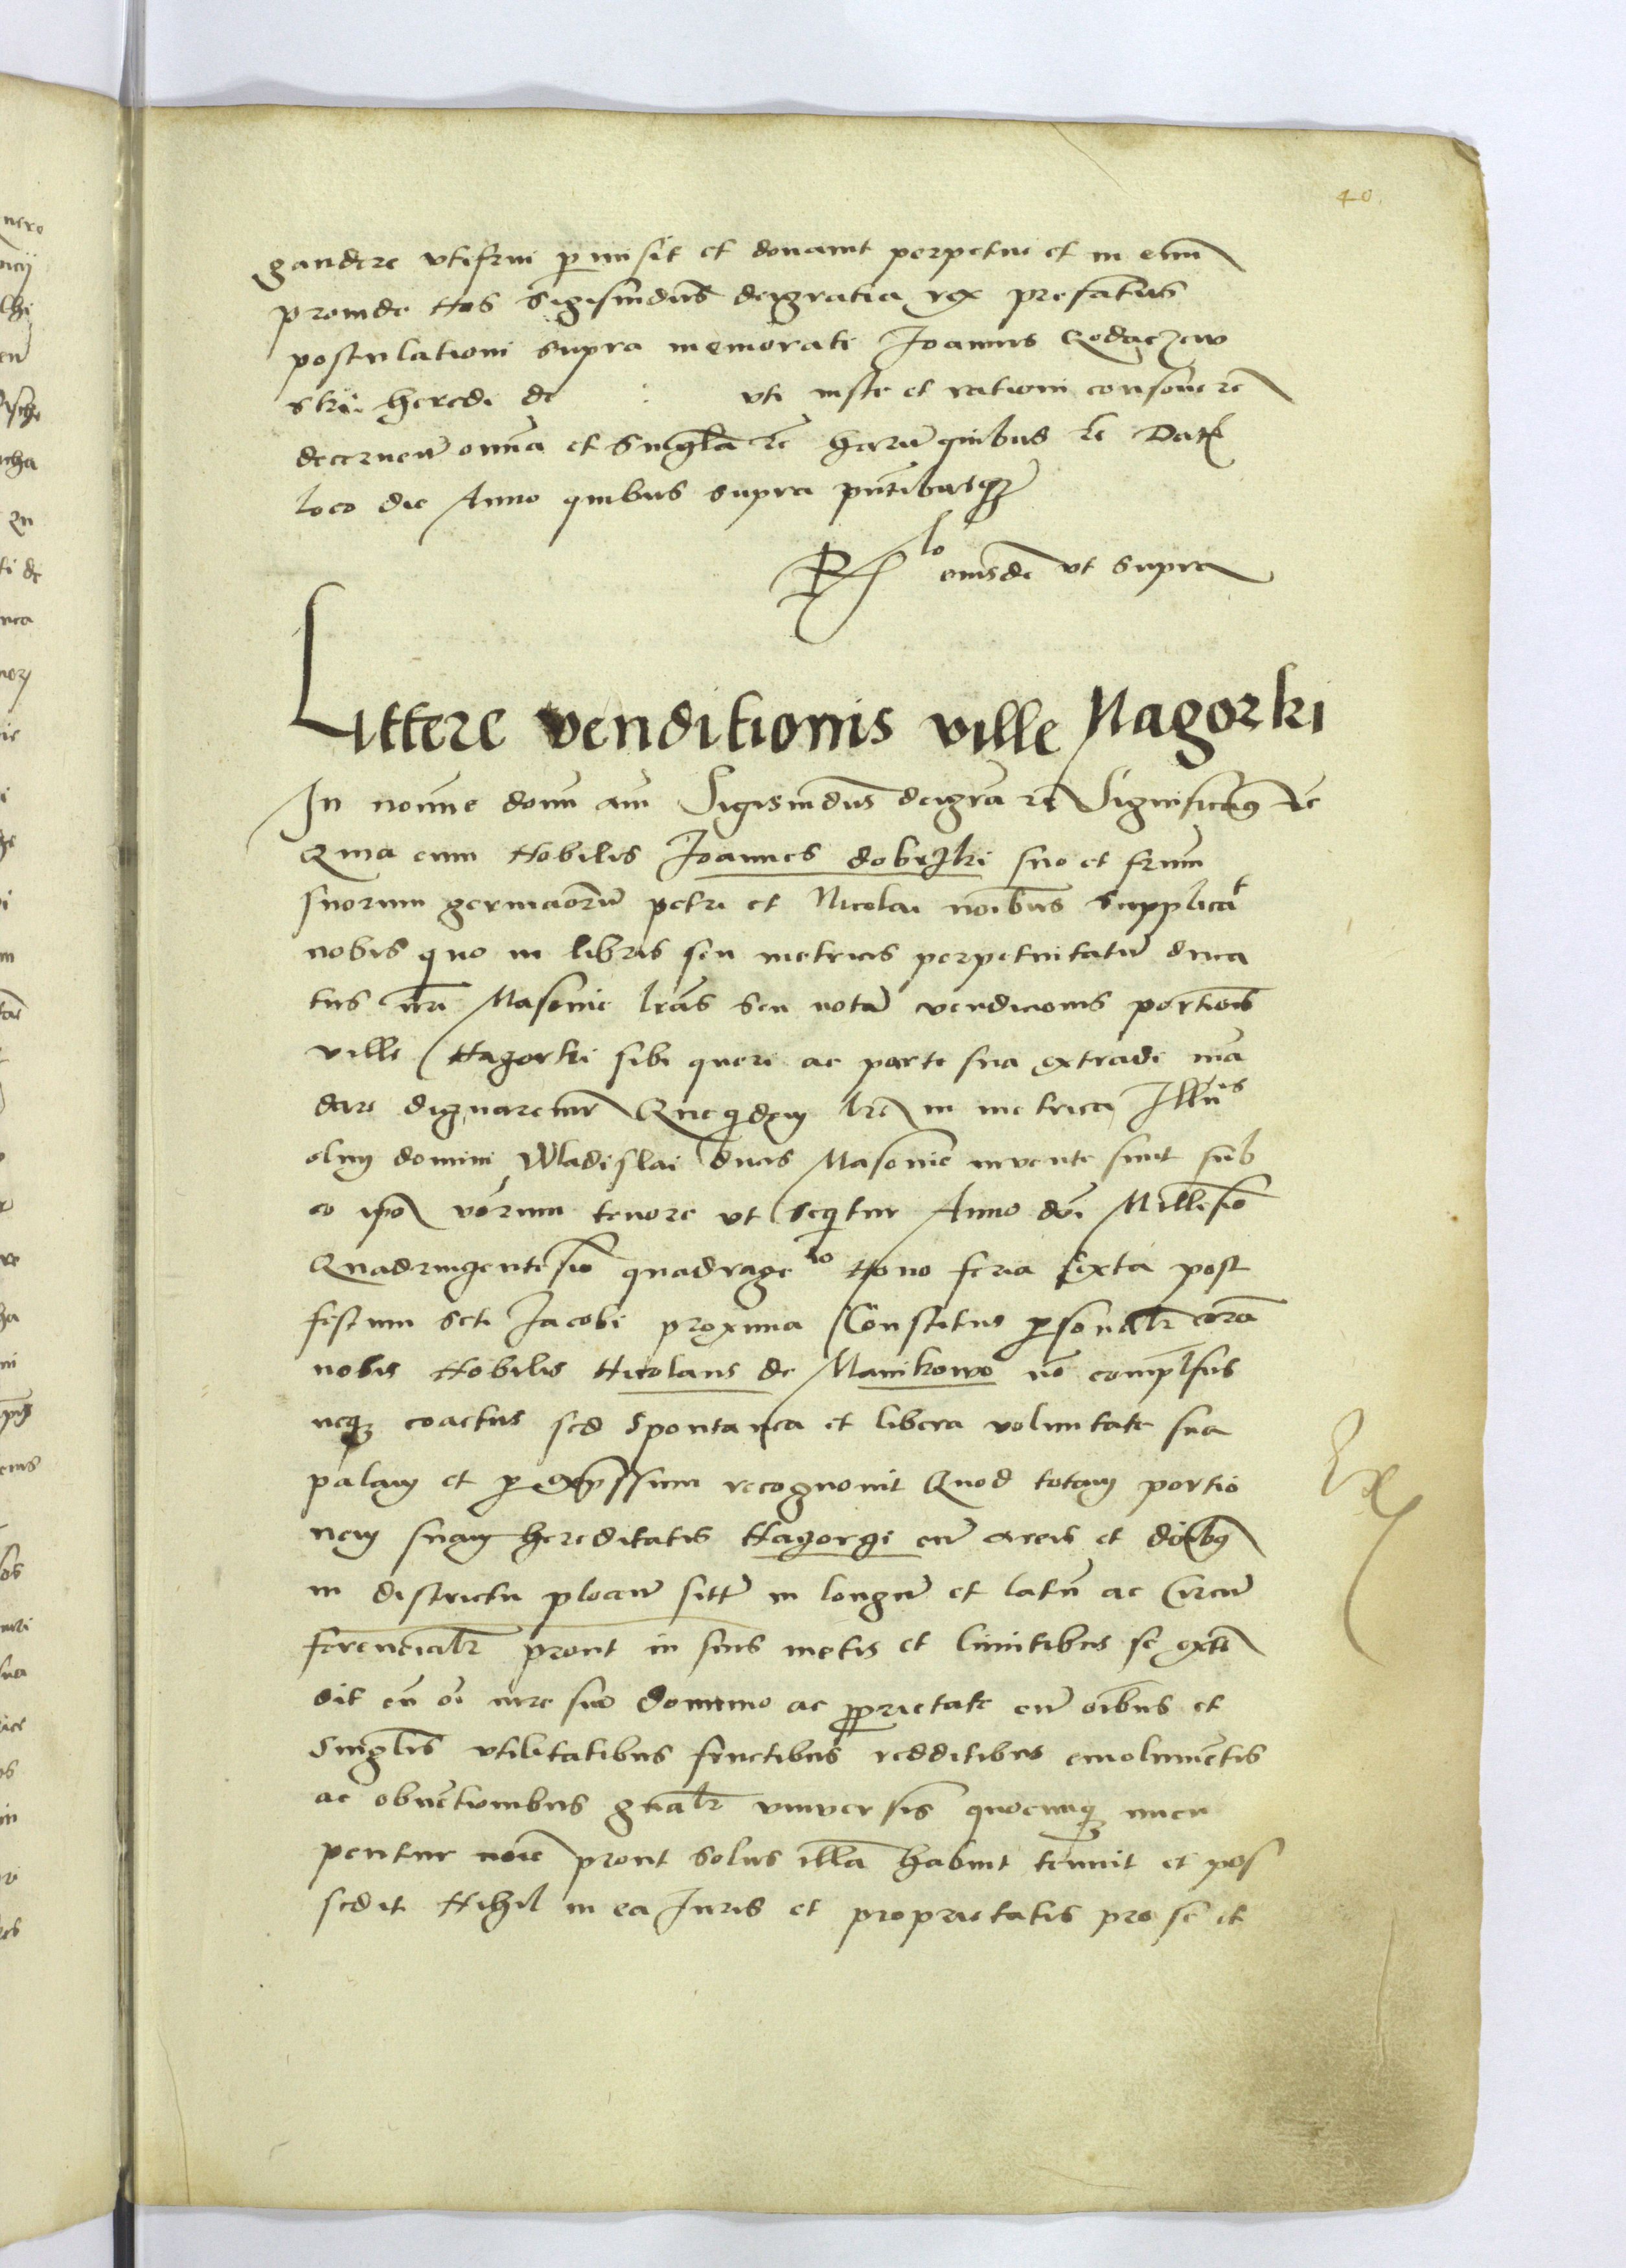 40.
gaudere utifrui permisit et donavit perpetue et in evum
proinde Nos Sigismundus dei gratia rex prefatus
postulationi supra memorati Joannis Rodaczew
skii heredi de uti iuste et rationi consone rem
decernen omnia et singula rc harum quibus rc Dat
loco die Anno quibus supra pntibusqz
Rlo eiusdem ut supra
Littere venditionis ville Nagorki
In nomine domini ami Sigismundus dei gra rc Significamus rc
Quia cum Nobilis Joannes dobrzki suo et frum
suorum germanorum petri et Nicolai noibus supplicat
nobis quo in libris seu metricis perpetuitatum duca
tus nri Masovie lras seu notam vendicionis portionis
ville Nagorki sibi queri ac parte sua extradi man
dare dignaremur Que quidem lre in metrica Illris
olim domini Wladislai ducis Masovie invente sunt sub
eo ipso verum tenore ut sequitur Anno dni Millesimo
Quadringentesimo quadrage mo Nono feria sexta post
festum scti Jacobi proxima Constitus personalr coram
nobis Nobilis Nicolaus de Manikowo no compulsus
neqz coactus sed spontanea et libera voluntate sua
palam et per expressum recognovit Quod totam portio
nem suam hereditatis Nagorgi cum areis et
in districtu plocen sitam in longum et latum ac circum
ferencialr prout in suis metis et limitibus se exten
dit cum omi iure suo dominio ac proprietate cum oibus et
singulis utilitatibus fructibus redditibus emolumentis
ac obventionibus gnalr universis quocunqz nuncu
pentur noie prout solus illam habuit tenuit et pos
sedit Nihil in ea Juris et proprietatis pro se et